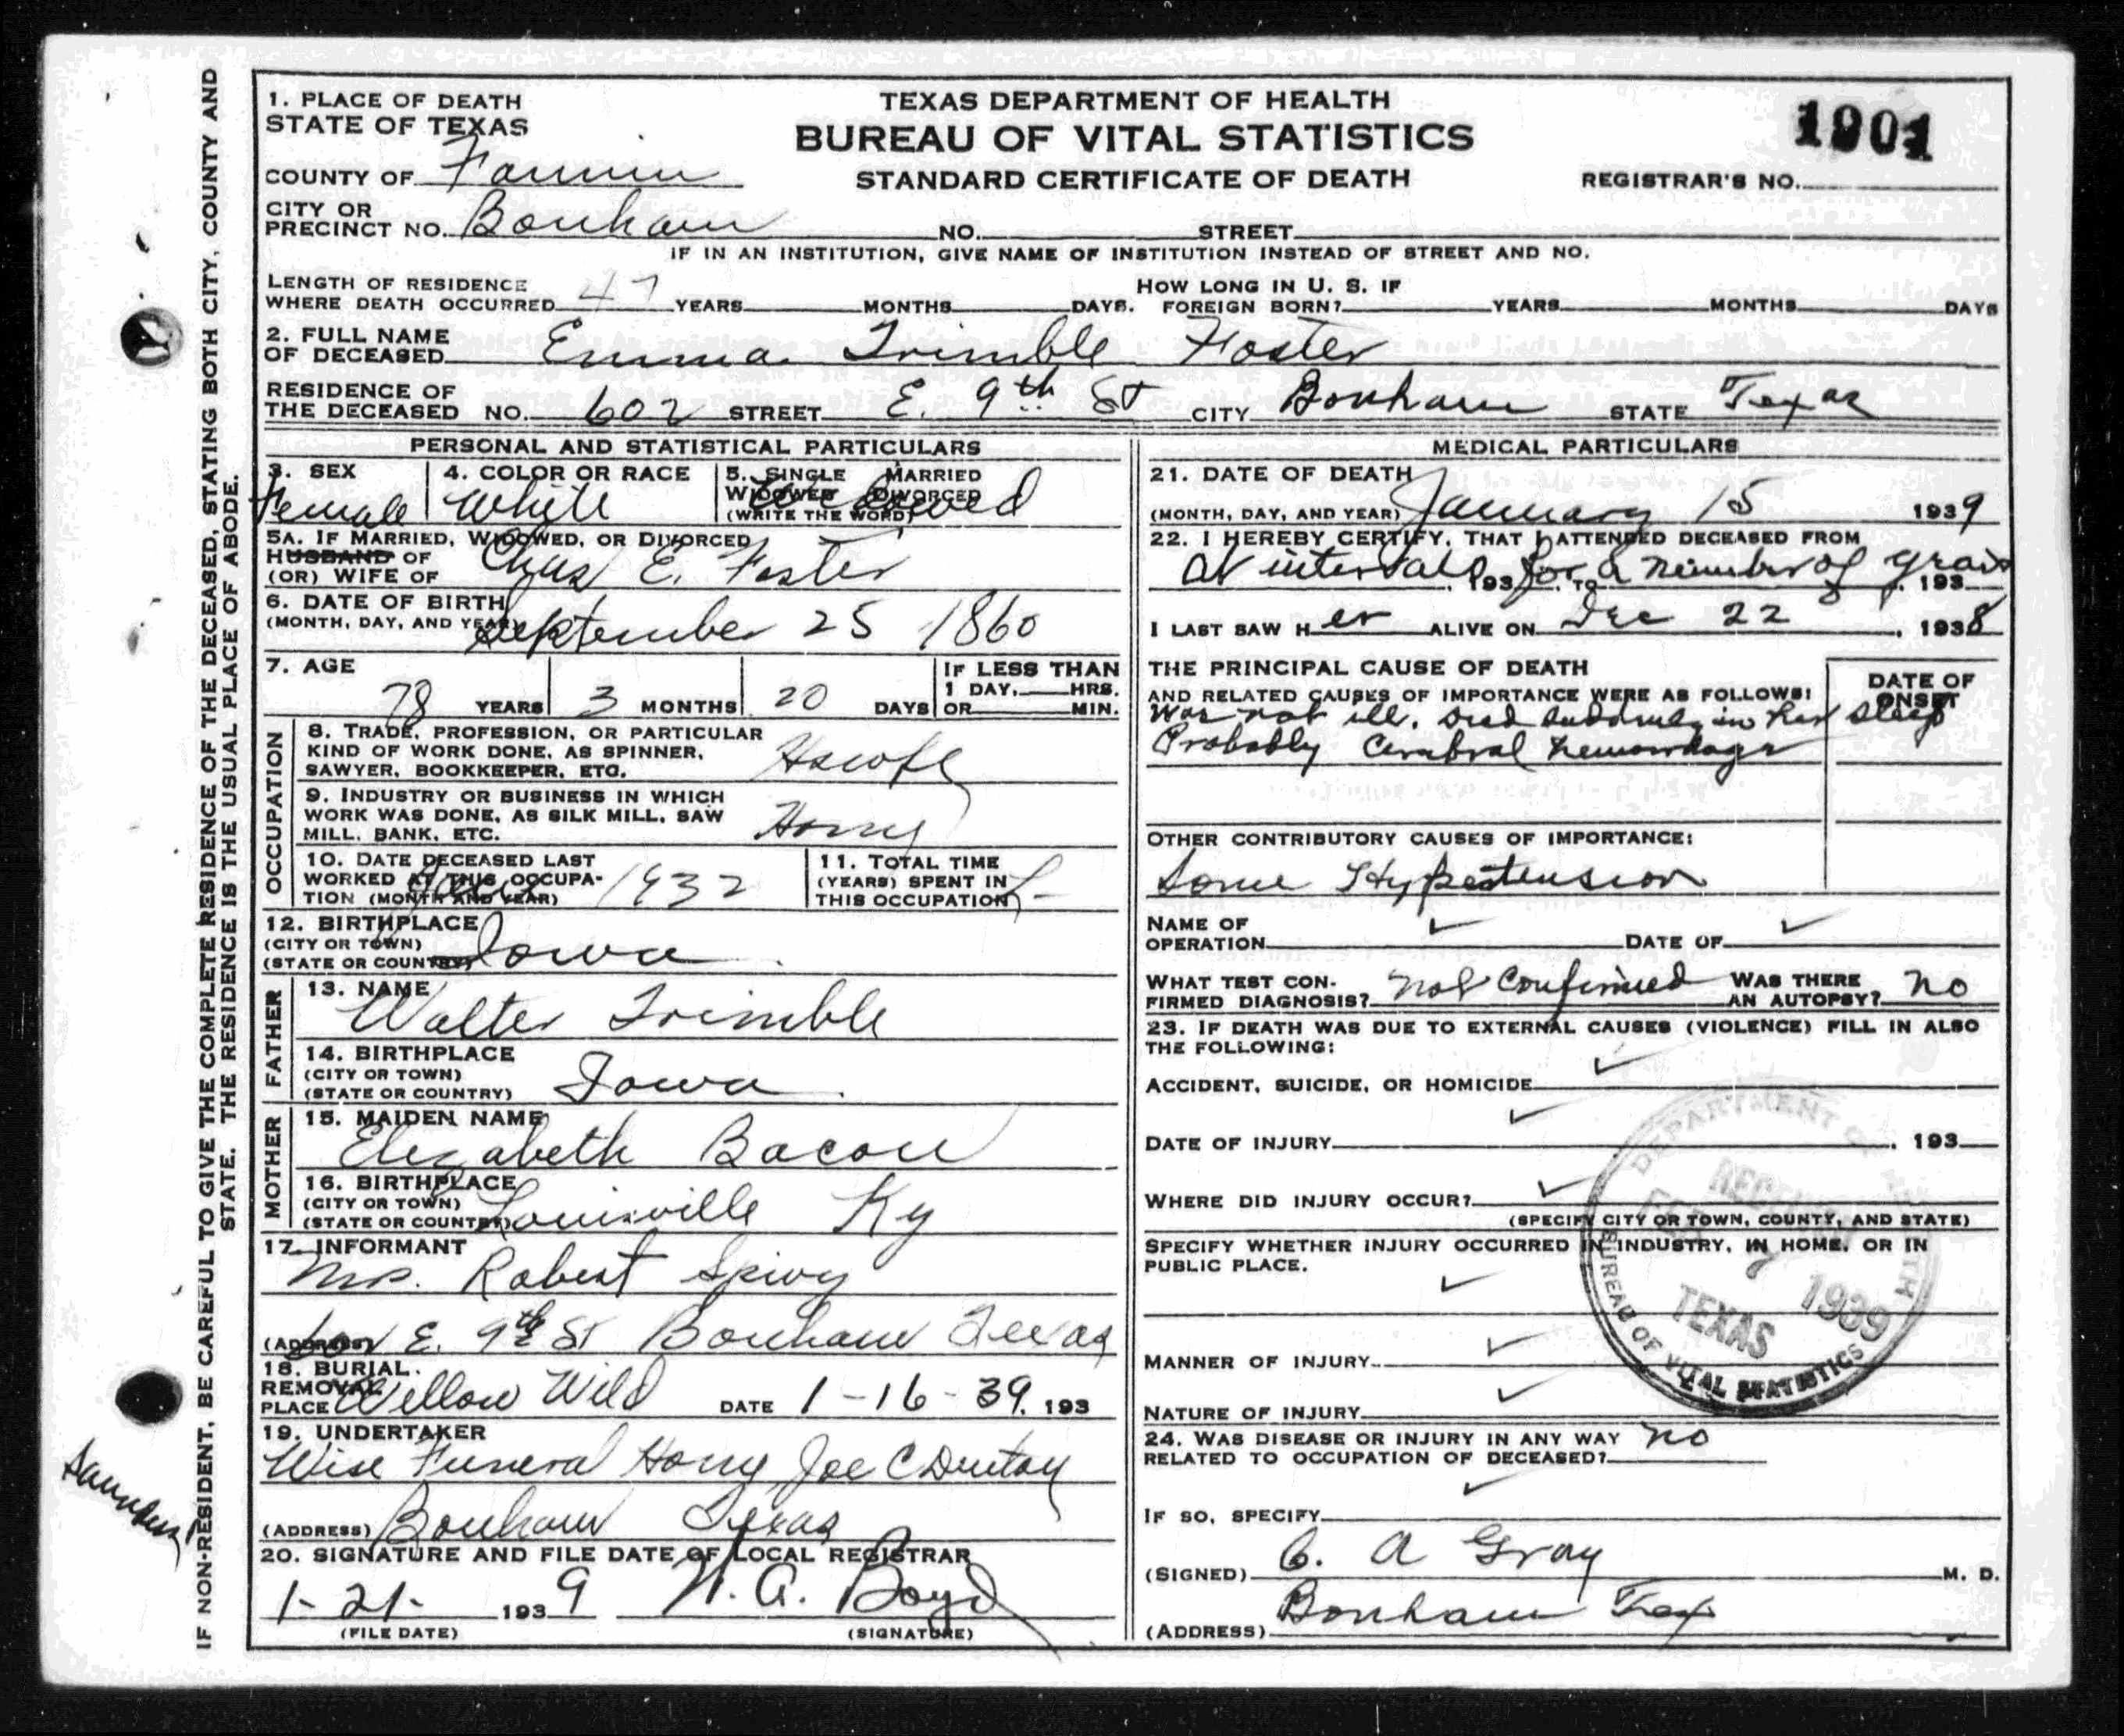 1. PLACE OF DEATH
STATE OF TEXAS
TEXAS DEPARTMENT OF HEALTH
BUREAU OF VITAL STATISTICS
STANDARD CERTIFICATE OF DEATH
1901
REGISTRAR'S NO.
COUNTY OF Fannin
CITY OR
PRECINCT NO. Bonham NO. STREET
IF IN AN INSTITUTION, GIVE NAME OF INSTITUTION INSTEAD OF STREET AND NO.
LENGTH OF RESIDENCE
WHERE DEATH OCCURRED 47 YEARS MONTHS DAYS.
HOW LONG IN U. S. IF
FOREIGN BORN? YEARS MONTHS DAYS
2. FULL NAME
OF DECEASED Emma Trimble Foster
RESIDENCE OF
THE DECEASED NO. 602 STREET E. 9th St CITY Bonham STATE Texas
PERSONAL AND STATISTICAL PARTICULARS
3. SEX
Female
4. COLOR OR RACE
White
5. SINGLE MARRIED
WIDOWED DIVORCED
(WRITE THE WORD)
Widowed
5A. IF MARRIED, WIDOWED, OR DIVORCED
HUSBAND OF
(OR) WIFE OF Chas E. Foster
6. DATE OF BIRTH
(MONTH, DAY, AND YEAR) September 25 1860
7. AGE
78 YEARS 3 MONTHS 20 DAYS
IF LESS THAN
1 DAY, HRS.
OR MIN.
OCCUPATION
8. TRADE, PROFESSION, OR PARTICULAR
KIND OF WORK DONE, AS SPINNER,
SAWYER, BOOKKEEPER, ETC.
Hswfe
9. INDUSTRY OR BUSINESS IN WHICH
WORK WAS DONE, AS SILK MILL, SAW
MILL, BANK, ETC.
Home
10. DATE DECEASED LAST
WORKED AT THIS OCCUPA-
TION (MONTH AND YEAR) 1932
11. TOTAL TIME
(YEARS) SPENT IN
THIS OCCUPATION
12. BIRTHPLACE
(CITY OR TOWN)
(STATE OR COUNTRY) Iowa
FATHER
13. NAME
Walter Trimble
14. BIRTHPLACE
(CITY OR TOWN)
(STATE OR COUNTRY) Iowa
MOTHER
15. MAIDEN NAME
Elezabeth Bacon
16. BIRTHPLACE
(CITY OR TOWN)
(STATE OR COUNTRY) Louisville Ky
17. INFORMANT
Mrs. Robert Spivy
(ADDRESS) 602 E. 9th St Bonham Texas
18. BURIAL.
REMOVAL
PLACE Willow Wild DATE 1-16-39. 193
19. UNDERTAKER
Wise Funeral Home Joe C Denton
(ADDRESS) Bonham Texas
20. SIGNATURE AND FILE DATE OF LOCAL REGISTRAR
1-21- 1939 H. A. Boyd
(FILE DATE) (SIGNATURE)
MEDICAL PARTICULARS
21. DATE OF DEATH
(MONTH, DAY, AND YEAR) January 15 1939
22. I HEREBY CERTIFY, THAT I ATTENDED DECEASED FROM
at intervals for a number of years
, 193 , TO , 193
I LAST SAW H er ALIVE ON Dec 22 , 1938
THE PRINCIPAL CAUSE OF DEATH
AND RELATED CAUSES OF IMPORTANCE WERE AS FOLLOWS:
DATE OF
ONSET
Was not ill. Died suddenly in her sleep
Probably Cerebral hemorrhage
OTHER CONTRIBUTORY CAUSES OF IMPORTANCE:
Some Hypertension
NAME OF
OPERATION ✓ DATE OF ✓
WHAT TEST CON-
FIRMED DIAGNOSIS? not confirmed
WAS THERE
AN AUTOPSY? no
23. IF DEATH WAS DUE TO EXTERNAL CAUSES (VIOLENCE) FILL IN ALSO
THE FOLLOWING:
ACCIDENT, SUICIDE, OR HOMICIDE ✓
DATE OF INJURY ✓ , 193
WHERE DID INJURY OCCUR? ✓
(SPECIFY CITY OR TOWN, COUNTY, AND STATE)
SPECIFY WHETHER INJURY OCCURRED IN INDUSTRY, IN HOME, OR IN
PUBLIC PLACE.
✓
MANNER OF INJURY ✓
NATURE OF INJURY ✓
24. WAS DISEASE OR INJURY IN ANY WAY
RELATED TO OCCUPATION OF DECEASED? no
IF SO, SPECIFY ✓
(SIGNED) C. A Gray M. D.
(ADDRESS) Bonham Tex
DEPARTMENT OF HEALTH
RECEIVED
FEB 1939
TEXAS
BUREAU OF VITAL STATISTICS
IF NON-RESIDENT, BE CAREFUL TO GIVE THE COMPLETE RESIDENCE OF THE DECEASED, STATING BOTH CITY, COUNTY AND
STATE. THE RESIDENCE IS THE USUAL PLACE OF ABODE.